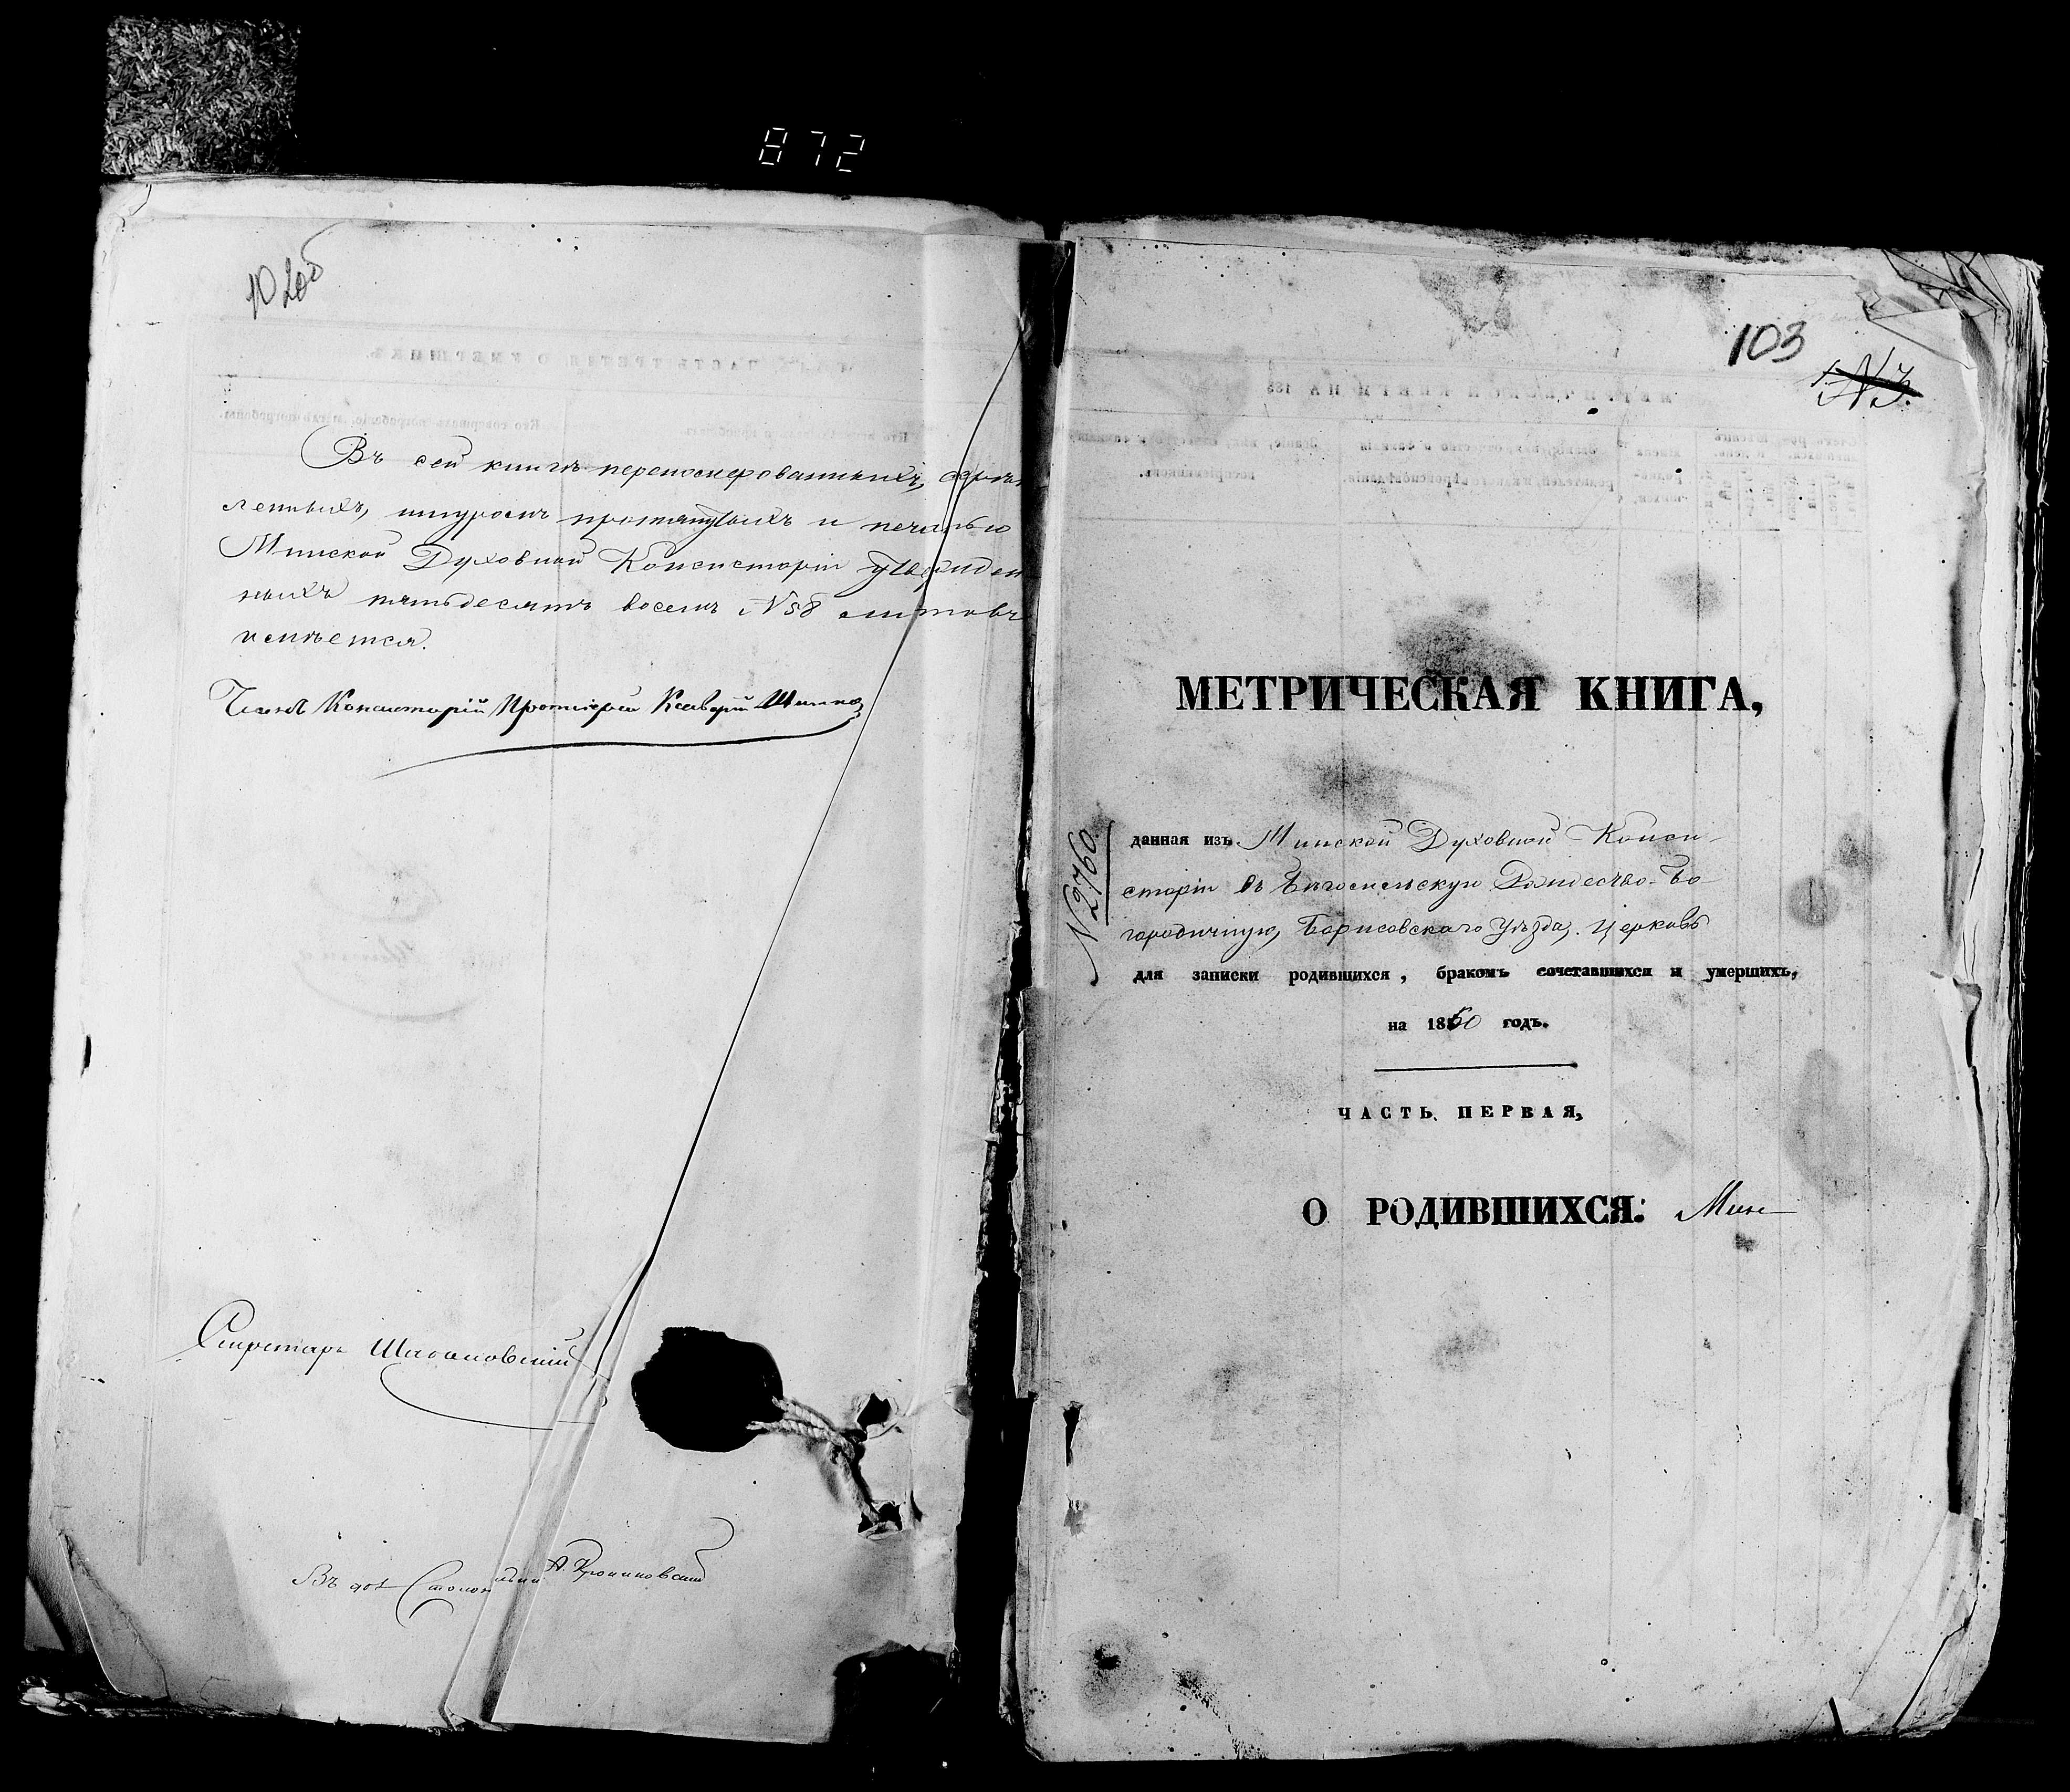 872
102об
Въ сей книгѣ перенумерованныхъ, скрѣп
ленныхъ, шнуромъ протянутыхъ и печатью
Минской Духовной Консисторіи утвержден
ныхъ пятьдесятъ восемь N 58 листовъ
имѣется.
Членъ Консисторіи Протоіерей
Секретарь
Въ дол
103
МЕТРИЧЕСКАЯ КНИГА,
N 2760.
данная изъ Минской Духовной Конси-
сторіи въ Рождество-Бо-
городичную, Борисовскаго Уѣзда, Церковь
для записки родившихся, бракомъ сочетавшихся и умершихъ,
на 1860 годъ.
ЧАСТЬ ПЕРВАЯ,
О РОДИВШИХСЯ: